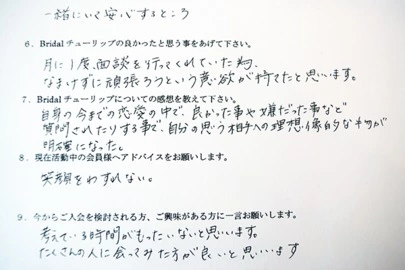 一緒にいて安心するところ
6．Bridalチューリップの良かったと思う事をあげて下さい。
月に1度、面談を行ってくれていた為、
なまけずに頑張ろうという意欲が持てたと思います。
7．Bridalチューリップについての感想を教えて下さい。
自身の今までの恋愛の中で、良かった事や嫌だった事など
質問されたりする事で、自分の思う相手への理想像的なものが
明確になった。
8．現在活動中の会員様へアドバイスをお願いします。
笑顔をわすれない。
9．今からご入会を検討される方、ご興味がある方に一言お願いします。
考えている時間がもったいないと思います。
たくさんの人に会ってみた方が良いと思います